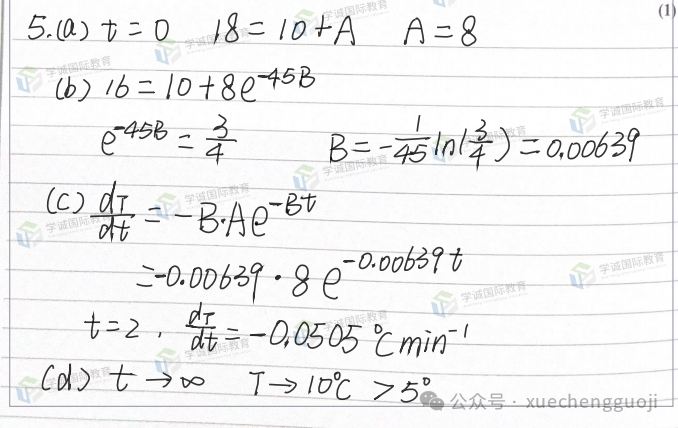 (1)
5.(a) t=0 18=10+A A=8
(b) 16=10+8e^-45B
e^-45B = 3/4 B=-1/45 ln(3/4)=0.00639
(c) dT/dt = -B·Ae^-Bt
=-0.00639·8e^-0.00639t
t=2, dT/dt=-0.0505 °C min^-1
(d) t→∞ T→10°C >5°
学诚国际教育
公众号·xuechengguoji